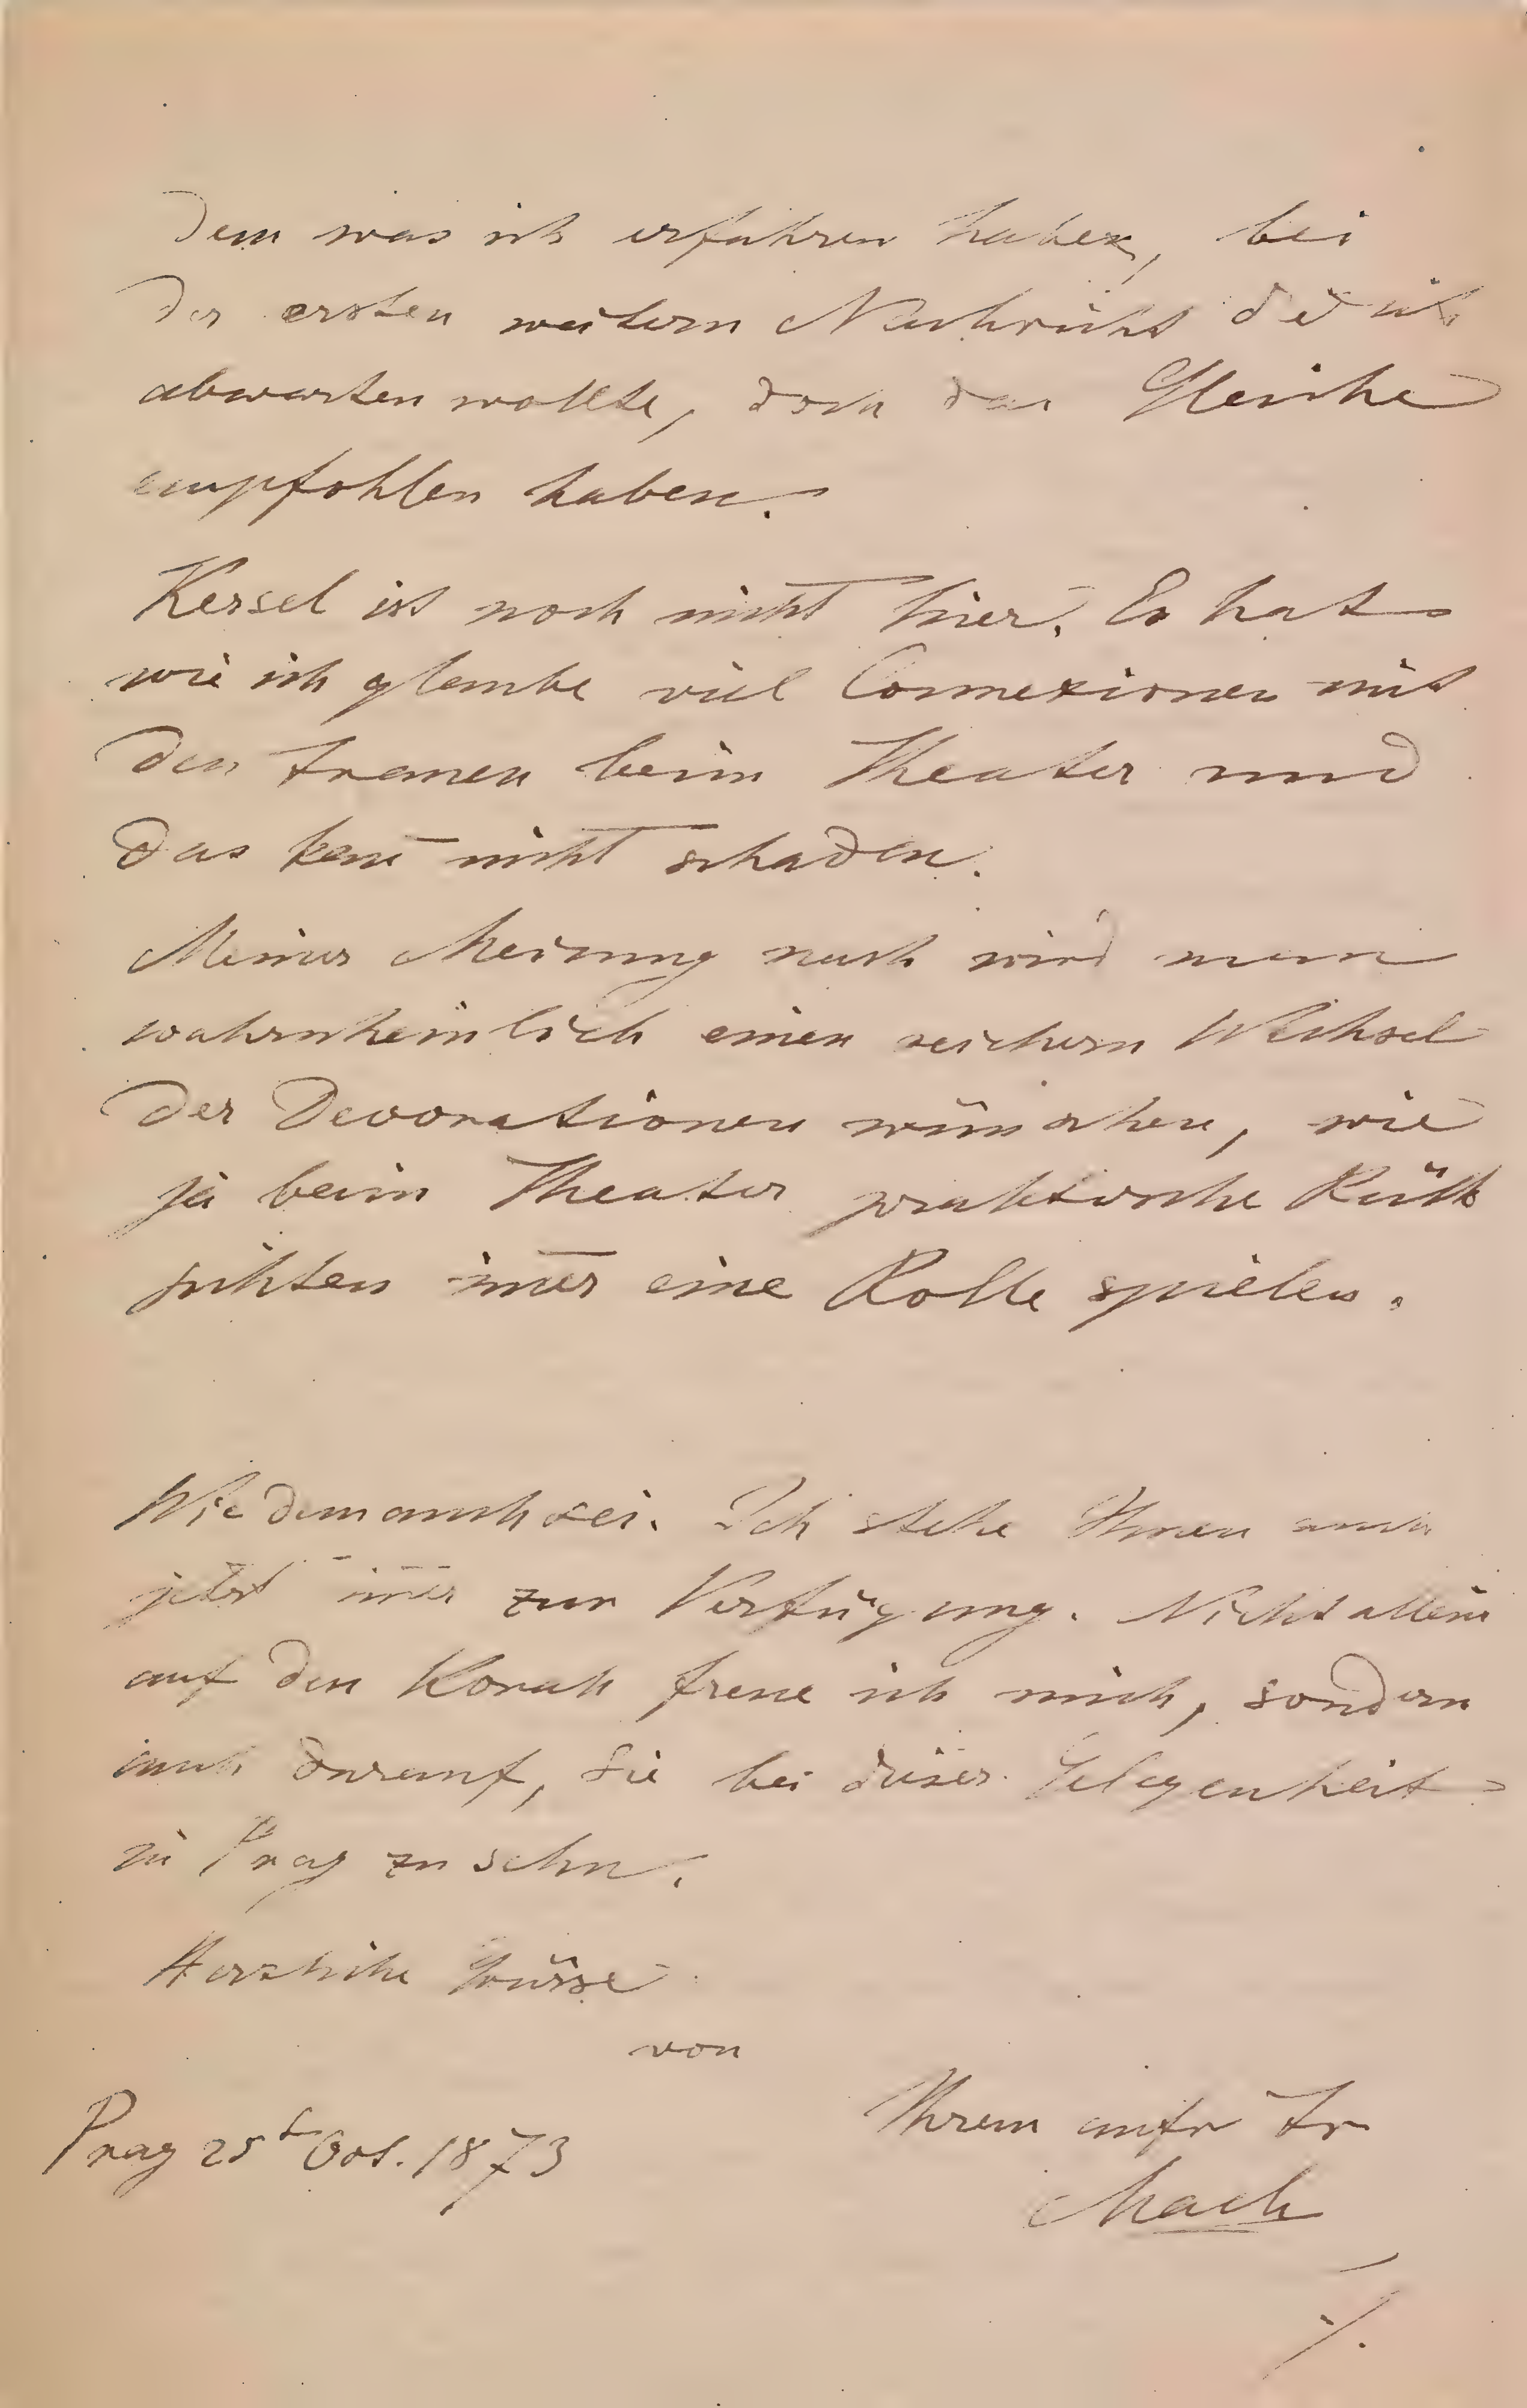 dem was ich erfahren haben, bei
der ersten weitern Nachricht die ich
abwarten wollte, doch das Gleiche
empfohlen haben.
Kessel ist noch nicht hier. Er hat
wie ich glaube viel Connexionen mit
den Frauen beim Theater und
das kan̄ nicht schaden.
Meiner Meinung nach wird man
wahrscheinlich einen reichern Wechsel
der Decorationen wünschen, wie
ja beim Theater praktische Rück
sichten im̄er eine Rolle spielen.
Wie dem auch sei. Ich stehe Ihnen auch
jetzt im̄er zur Verfügung. Nicht allein
auf den Korah freue ich mich, sondern
auch darauf, Sie bei dieser Gelegenheit
in Prag zu sehn.
Herzliche Grüsse
von
Ihrem aufr Fr
Prag 25t Oct. 1873
Mach